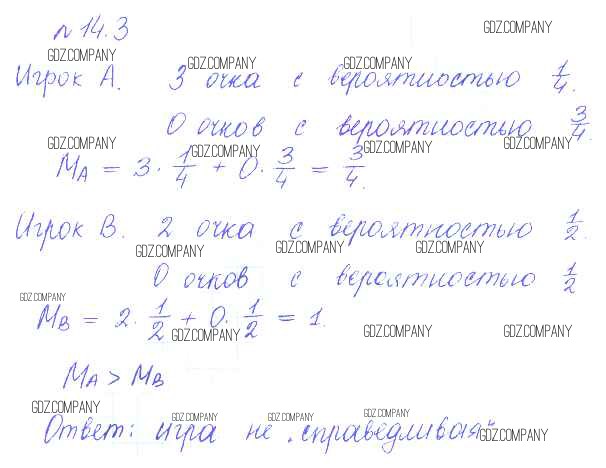 № 14.3
GDZ.COMPANY
GDZ.COMPANY GDZ.COMPANY GDZ.COMPANY
Игрок А. 3 очка с вероятностью 1/4.
0 очков с вероятностью 3/4.
GDZ.COMPANY GDZ.COMPANY GDZ.COMPANY GDZ.COMPANY
MA = 3 · 1/4 + 0 · 3/4 = 3/4.
Игрок В. 2 очка с вероятностью 1/2.
GDZ.COMPANY GDZ.COMPANY GDZ.COMPANY
0 очков с вероятностью 1/2
GDZ.COMPANY
MB = 2 · 1/2 + 0 · 1/2 = 1.
GDZ.COMPANY GDZ.COMPANY GDZ.COMPANY
MA > MB
GDZ.COMPANY GDZ.COMPANY GDZ.COMPANY GDZ.COMPANY
Ответ: игра не справедливая
GDZ.COMPANY